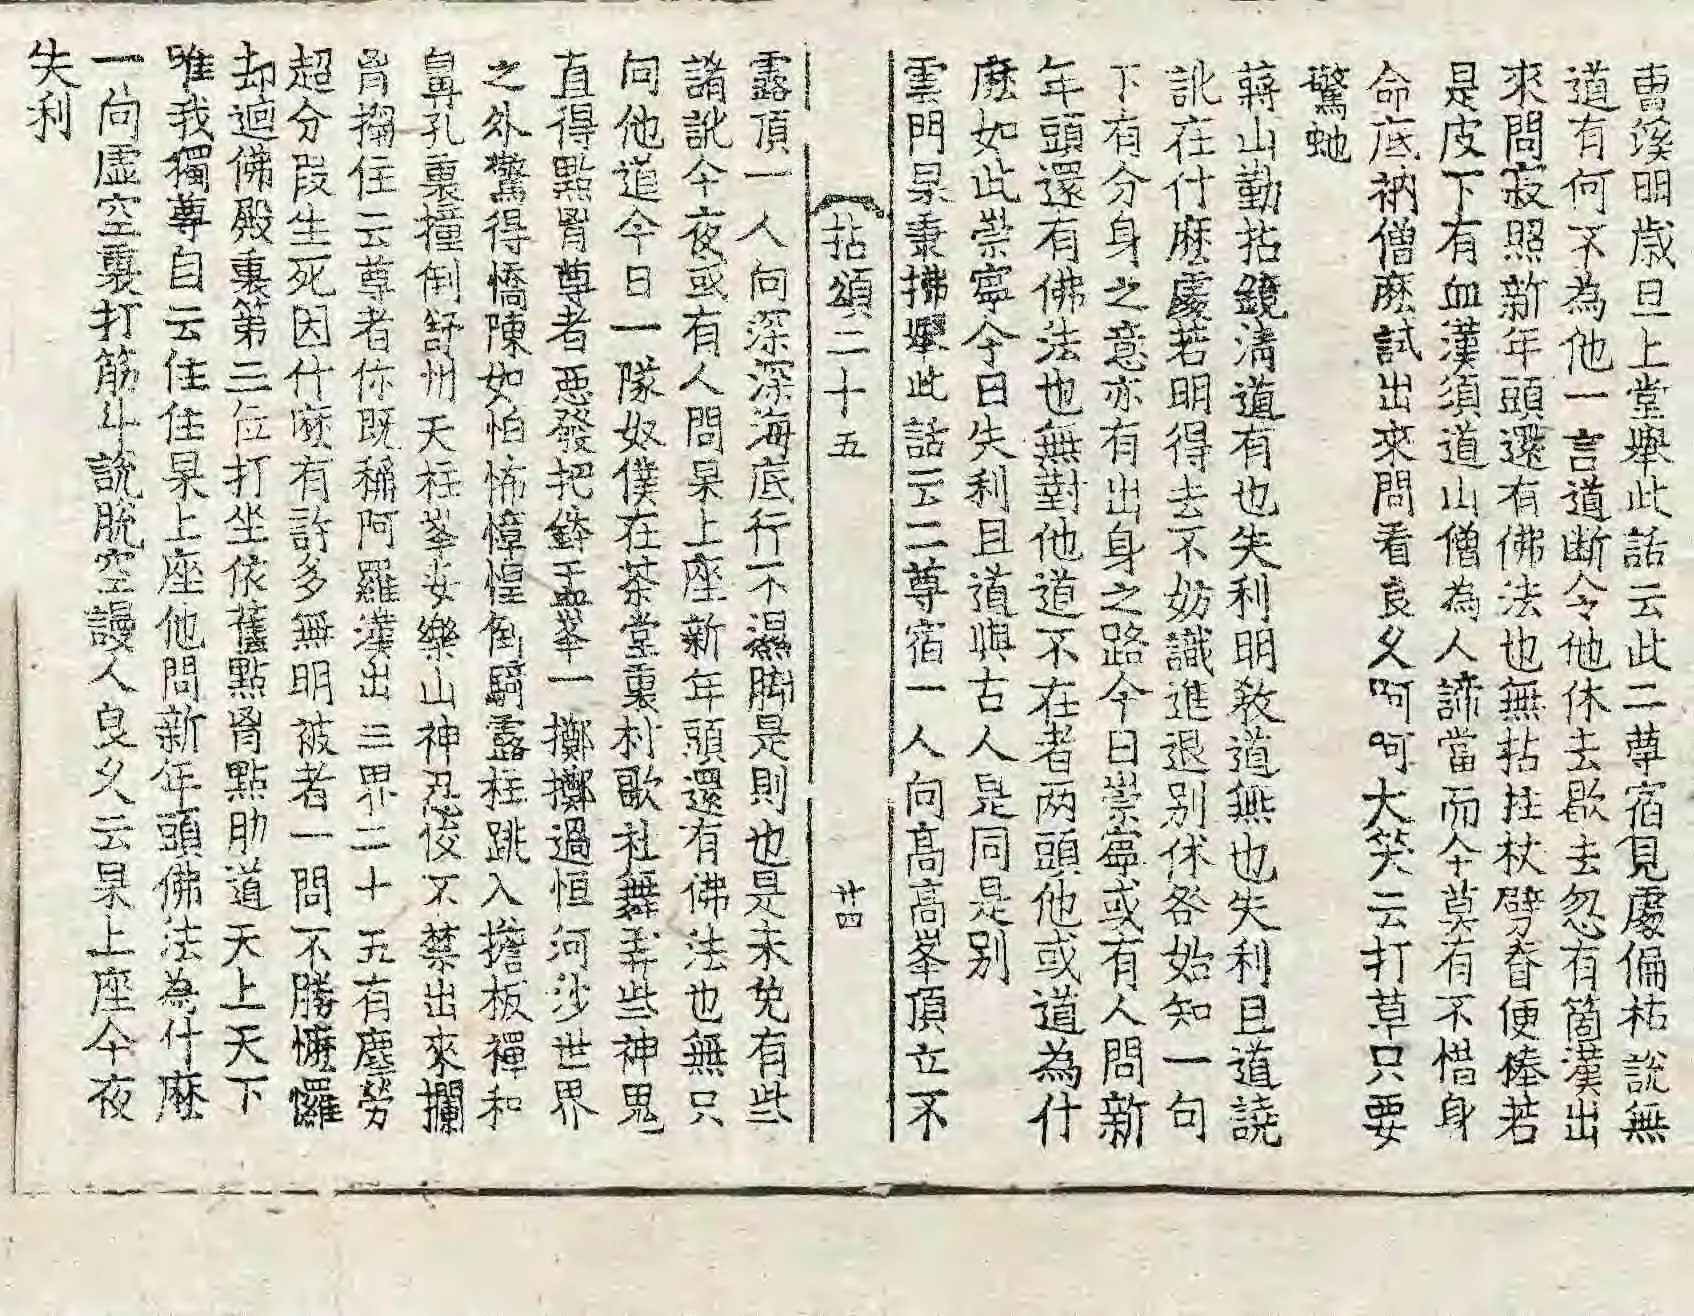 曹溪明歲旦上堂舉此話云此二尊宿見處偏枯說無
道有何不為他一言道断令他休去歇去忽有箇漢出
來問寂照新年頭還有佛法也無拈拄杖劈脊便棒若
是皮下有血漢須道山僧為人諦當而今莫有不惜身
命底衲僧麽試出來問看良久呵呵大笑云打草只要
驚虵
蔣山勤拈鏡清道有也失利明教道無也失利且道誵
訛在什麽處若明得去不妨識進退別休咎始知一句
下有分身之意亦有出身之路今日崇寧或有人問新
年頭還有佛法也無對他道不在者两頭他或道為什
麽如此崇寧今日失利且道與古人是同是别
雲門杲秉拂舉此話云二尊宿一人向髙髙峯頂立不
拈頌二十五 廿四
露頂一人向深深海底行不濕脚是則也是未免有些
誵訛今夜或有人問杲上座新年頭還有佛法也無只
向他道今日一隊奴僕在茶堂裏村歌社舞弄些神鬼
直得點胷尊者惡發把鉢盂峯一擲擲過恒河沙世界
之外驚得憍陳如怕怖慞惶倒騎露柱跳入擔板禪和
鼻孔裏撞倒舒州天柱峯安樂山神忍俊不禁出來攔
胷搊住云尊者你既稱阿羅漢出三界二十五有塵勞
超分段生死因什麽有許多無明被者一問不勝懡㦬
却迴佛殿裏第三位打坐依舊點胷點肋道天上天下
唯我獨尊自云住住杲上座他問新年頭佛法為什麽
一向虛空裏打筋斗說脫空謾人良久云杲上座今夜
失利